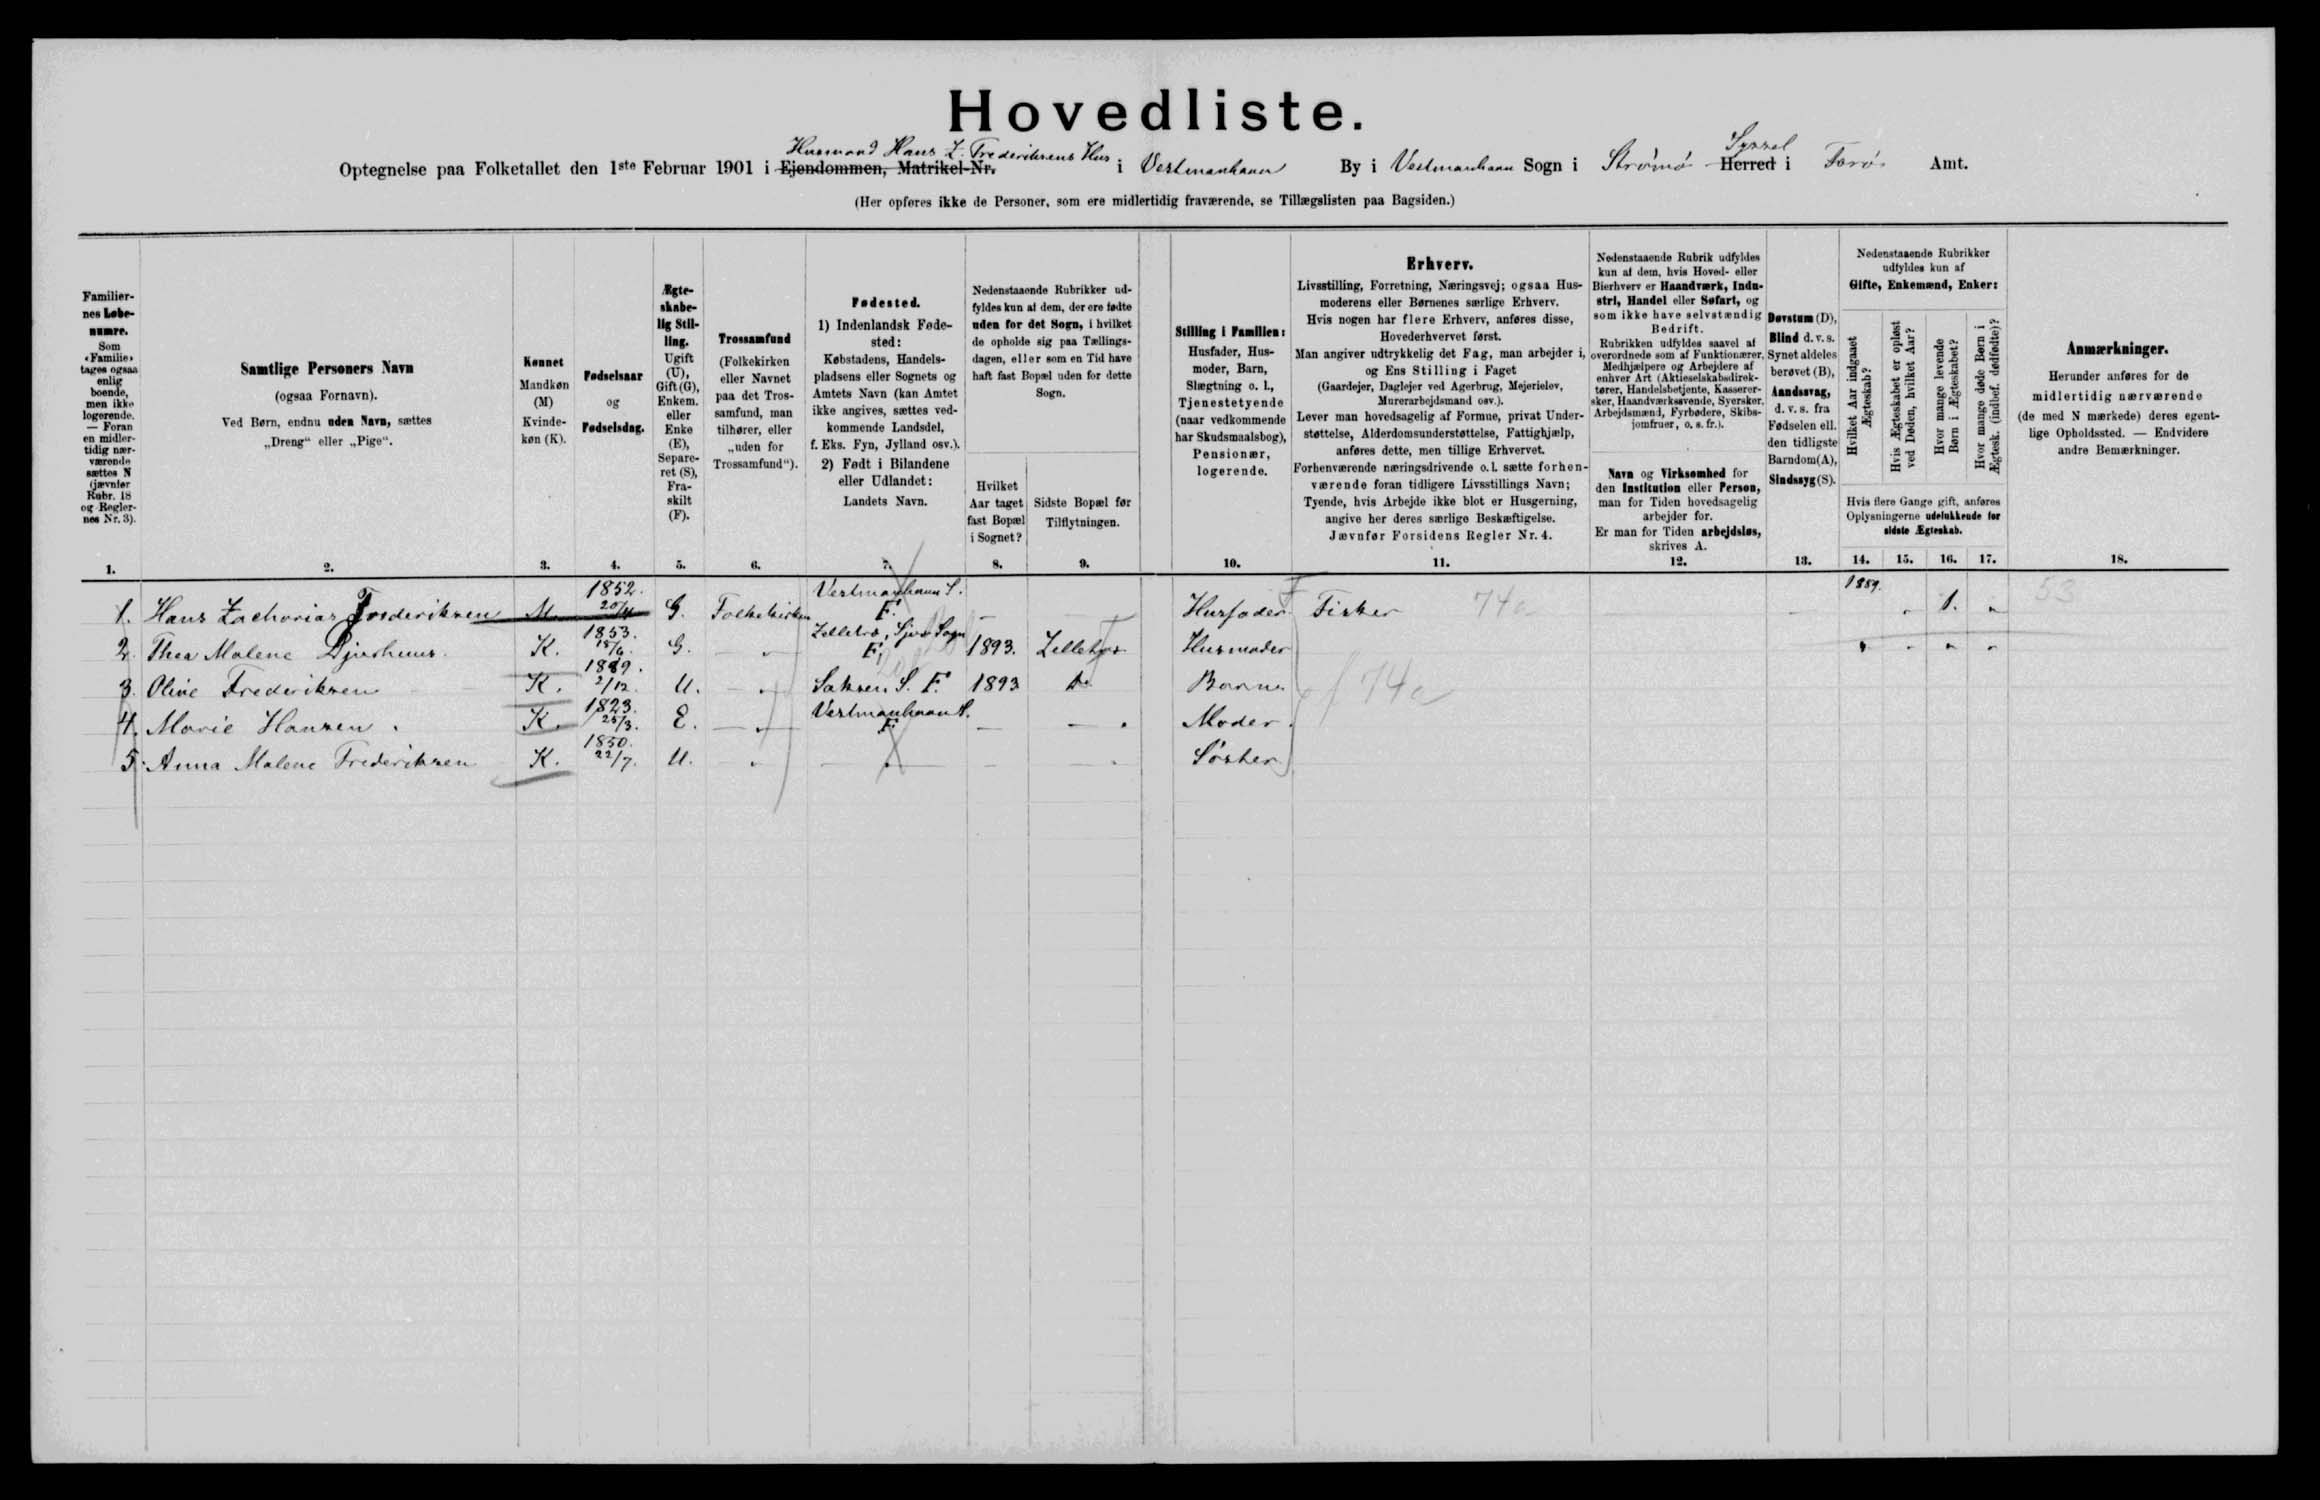 Hovedliste.
Husmand Hans Z. Frederiksens Hus
Syssel
Optegnelse paa Folketallet den 1ste Februar 1901 i Ejendommen, Matrikel-Nr. i Vestmanhavn By i Vestmanhavn Sogn i Strømø Herred i Færø Amt.
(Her opføres ikke de Personer, som ere midlertidig fraværende, se Tillægslisten paa Bagsiden.)
Familier-
nes Løbe-
numre.
Som
«Familie»
tages ogsaa
enlig
boende,
men ikke
logerende.
— Foran
en midler-
tidig nær-
værende
sættes N
(jævnfør
Rubr. 18
og Regler-
nes Nr. 3).
1.
Samtlige Personers Navn
(ogsaa Fornavn).
Ved Børn, endnu uden Navn, sættes
„Dreng“ eller „Pige“.
2.
Kønnet
Mandkøn
(M)
Kvinde-
køn (K).
3.
Fødselsaar
og
Fødselsdag.
4.
Ægte-
skabe-
lig Stil-
ling.
Ugift
(U),
Gift (G),
Enkem.
eller
Enke
(E),
Separe-
ret (S),
Fra-
skilt
(F).
5.
Trossamfund
(Folkekirken
eller Navnet
paa det Tros-
samfund, man
tilhører, eller
„uden for
Trossamfund“).
6.
Fødested.
1) Indenlandsk Føde-
sted:
Købstadens, Handels-
pladsens eller Sognets og
Amtets Navn (kan Amtet
ikke angives, sættes ved-
kommende Landsdel,
f. Eks. Fyn, Jylland osv.).
2) Født i Bilandene
eller Udlandet:
Landets Navn.
7.
Nedenstaaende Rubrikker ud-
fyldes kun af dem, der ere fødte
uden for det Sogn, i hvilket
de opholde sig paa Tællings-
dagen, eller som en Tid have
haft fast Bopæl uden for dette
Sogn.
Hvilket
Aar taget
fast Bopæl
i Sognet?
8.
Sidste Bopæl før
Tilflytningen.
9.
Stilling i Familien:
Husfader, Hus-
moder, Barn,
Slægtning o. l.,
Tjenestetyende
(naar vedkommende
har Skudsmaalsbog),
Pensionær,
logerende.
10.
Erhverv.
Livsstilling, Forretning, Næringsvej; ogsaa Hus-
moderens eller Børnenes særlige Erhverv.
Hvis nogen har flere Erhverv, anføres disse,
Hovederhvervet først.
Man angiver udtrykkelig det Fag, man arbejder i,
og Ens Stilling i Faget
(Gaardejer, Daglejer ved Agerbrug, Mejerielev,
Murerarbejdsmand osv.).
Lever man hovedsagelig af Formue, privat Under-
støttelse, Alderdomsunderstøttelse, Fattighjælp,
anføres dette, men tillige Erhvervet.
Forhenværende næringsdrivende o. l. sætte forhen-
værende foran tidligere Livsstillings Navn;
Tyende, hvis Arbejde ikke blot er Husgerning,
angive her deres særlige Beskæftigelse.
Jævnfør Forsidens Regler Nr. 4.
11.
Nedenstaaende Rubrik udfyldes
kun af dem, hvis Hoved- eller
Bierhverv er Haandværk, Indu-
stri, Handel eller Søfart, og
som ikke have selvstændig
Bedrift.
Rubrikken udfyldes saavel af
overordnede som af Funktionærer,
Medhjælpere og Arbejdere af
enhver Art (Aktieselskabsdirek-
tører, Handelsbetjente, Kasserer-
sker, Haandværkssvende, Syersker,
Arbejdsmænd, Fyrbødere, Skibs-
jomfruer, o. s. fr.).
Navn og Virksomhed for
den Institution eller Person,
man for Tiden hovedsagelig
arbejder for.
Er man for Tiden arbejdsløs,
skrives A.
12.
Døvstum (D),
Blind d. v. s.
Synet aldeles
berøvet (B),
Aandssvag,
d. v. s. fra
Fødselen ell.
den tidligste
Barndom (A),
Sindssyg (S).
13.
Nedenstaaende Rubrikker
udfyldes kun af
Gifte, Enkemænd, Enker:
Hvilket Aar indgaaet
Ægteskab?
Hvis Ægteskabet er opløst
ved Døden, hvilket Aar?
Hvor mange levende
Børn i Ægteskabet?
Hvor mange døde Børn i
Ægtesk. (indbef. dødfødte)?
Hvis flere Gange gift, anføres
Oplysningerne udelukkende for
sidste Ægteskab.
14. 15. 16. 17.
Anmærkninger.
Herunder anføres for de
midlertidig nærværende
(de med N mærkede) deres egent-
lige Opholdssted. — Endvidere
andre Bemærkninger.
18.
1. Hans Zacharias Frederiksen M. 1852. 20/11 G. Folkekirken Vestmanhavn S. F. — — Husfader Fisker 74a — 1889. " 1. " 53
2. Thea Malene Djurhuus. K. 1853. 18/6. G. — " Zelletræ, Sjov Sogn F. 1893. Zelletræ Husmoder " " " "
3. Oline Frederiksen K. 1889. 2/12. U. — " Saksen S. F. 1893 Do Barn 74a
4. Marie Hansen. K. 1823. 25/3. E. — " Vestmanhavn S. F. — — Moder
5. Anna Malene Frederiksen K. 1850. 22/7. U. " — " — — Søster